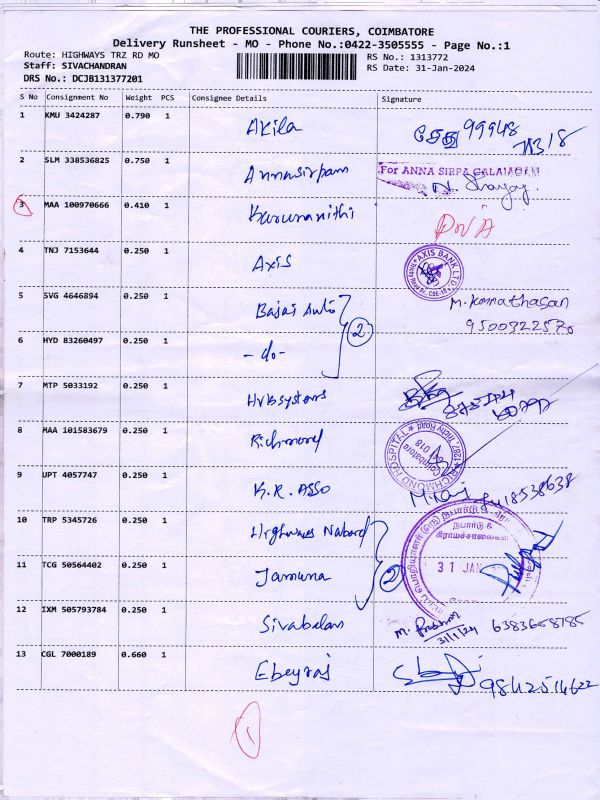 THE PROFESSIONAL COURIERS, COIMBATORE
Delivery Runsheet - MO - Phone No.:0422-3505555 - Page No.:1
Route: HIGHWAYS TRZ RD MO
Staff: SIVACHANDRAN
DRS No.: DCJB131377201
RS No.: 1313772
RS Date: 31-Jan-2024
S No Consignment No Weight PCS Consignee Details Signature
1 KMU 3424287 0.790 1 Akila
2 SLM 338536825 0.750 1 Annasirpam For ANNA SIRPA GALAIAGAM
3 MAA 100970666 0.410 1 Karunanithi
4 TNJ 7153644 0.250 1 Axis AXIS BANK LTD
5 SVG 4646894 0.250 1 Bajaj Auto
9500322570
2
6 HYD 83260497 0.250 1 -do-
7 MTP 5033192 0.250 1 Hvbsystems
8 MAA 101583679 0.250 1 Richmond RICHMOND HOSPITAL Coimbatore
9 UPT 4057747 0.250 1 K.R. ASSO
10 TRP 5345726 0.250 1 Highways Nabard
நபார்டு &
கிராமச்சாலைகள்
11 TCG 50564402 0.250 1 Jamuna 2 31 JAN
12 IXM 505793784 0.250 1 Sivabalan
31/1/24
13 CGL 7000189 0.660 1 Ebeyraj 9842514622
1